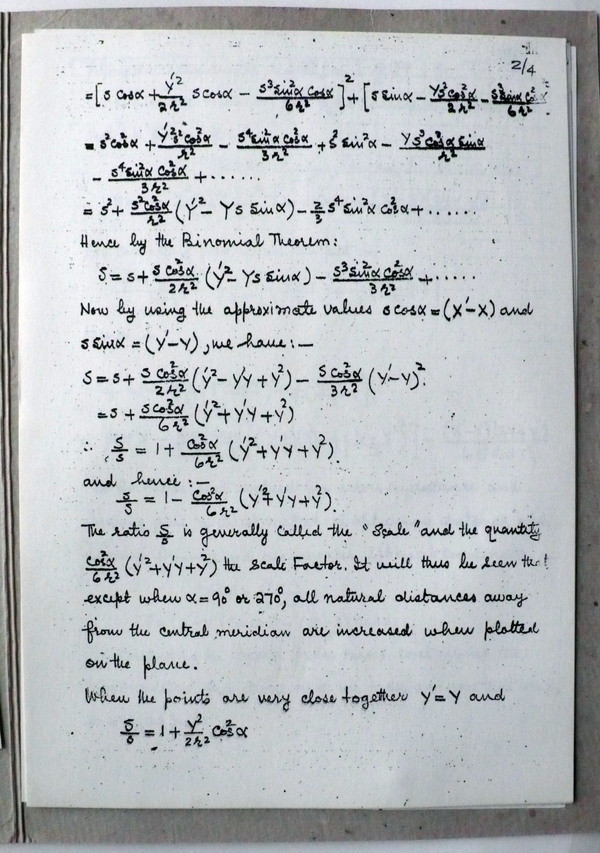 2/4
= [s Cosα + Y'²/2r² s cosα − s³Sin²α Cosα/6r²]² + [s Sinα − Ys²Cos²α/2r² − s³Sinα Cos²α/6r²
= s²Cos²α + Y'²s²Cos²α/r² − s⁴Sin²α Cos²α/3r² + s² Sin²α − Ys³Cos²α Sinα/r²
− s⁴Sin²α Cos²α/3r² + ......
= s² + s²Cos²α/r² (Y'² − Ys Sinα) − 2/3 s⁴Sin²α Cos²α + ......
Hence by the Binomial Theorem:
S = s + s Cos²α/2r² (Y'² − Ys Sinα) − s³Sin²α Cos²α/3r² + .....
Now by using the approximate values s cosα = (X'−X) and
s Sinα = (Y'−Y), we have :—
S = s + s Cos²α/2r² (Y'² − Y'Y + Y²) − s Cos²α/3r² (Y'−Y)².
= s + s Cos²α/6r² (Y'² + Y'Y + Y²)
∴ S/s = 1 + Cos²α/6r² (Y'² + Y'Y + Y²)
and hence :—
s/S = 1 − Cos²α/6r² (Y'² + Y'Y + Y²)
The ratio S/s is generally called the "Scale" and the quantity
Cos²α/6r² (Y'² + Y'Y + Y²) the Scale Factor. It will thus be seen that
except when α = 90° or 270°, all natural distances away
from the central meridian are increased when plotted
on the plane.
When the points are very close together Y' = Y and
S/s = 1 + Y²/2r² Cos²α